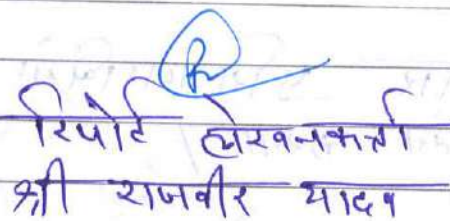 रिपोर्ट लेखनकर्ता
श्री राजवीर यादव